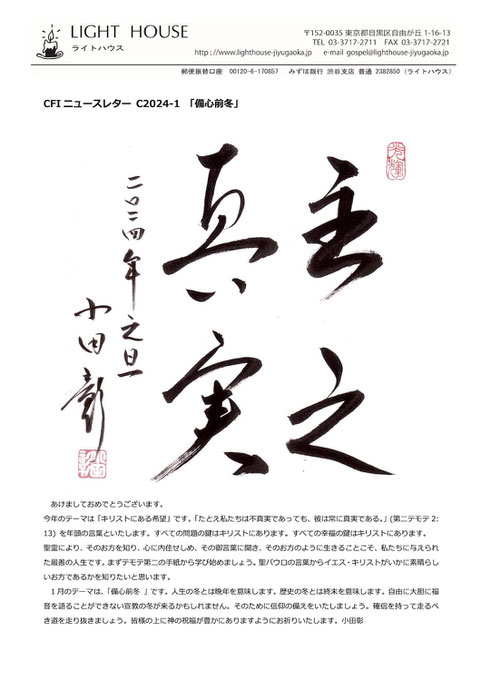 LIGHT HOUSE
ライトハウス
〒152-0035 東京都目黒区自由が丘 1-16-13
TEL 03-3717-2711 FAX 03-3717-2721
http://www.lighthouse-jiyugaoka.jp e-mail gospel@lighthouse-jiyugaoka.jp
郵便振替口座 00120-6-170857 みずほ銀行 渋谷支店 普通 2382850（ライトハウス）
CFI ニュースレター C2024-1 「備心前冬」
主之
真実
二〇二四年元旦
小田彰
あけましておめでとうございます。
今年のテーマは「キリストにある希望」です。「たとえ私たちは不真実であっても、彼は常に真実である。」(第二テモテ 2:
13) を年頭の言葉といたします。すべての問題の鍵はキリストにあります。すべての幸福の鍵はキリストにあります。
聖霊により、そのお方を知り、心に内住せしめ、その御言葉に聞き、そのお方のように生きることこそ、私たちに与えられ
た最善の人生です。まずテモテ第二の手紙から学び始めましょう。聖パウロの言葉からイエス・キリストがいかに素晴らし
いお方であるかを知りたいと思います。
１月のテーマは、「備心前冬 」です。人生の冬とは晩年を意味します。歴史の冬とは終末を意味します。自由に大胆に福
音を語ることができない宣教の冬が来るかもしれません。そのために信仰の備えをいたしましょう。確信を持って走るべ
き道を走り抜きましょう。皆様の上に神の祝福が豊かにありますようにお祈りいたします。小田彰